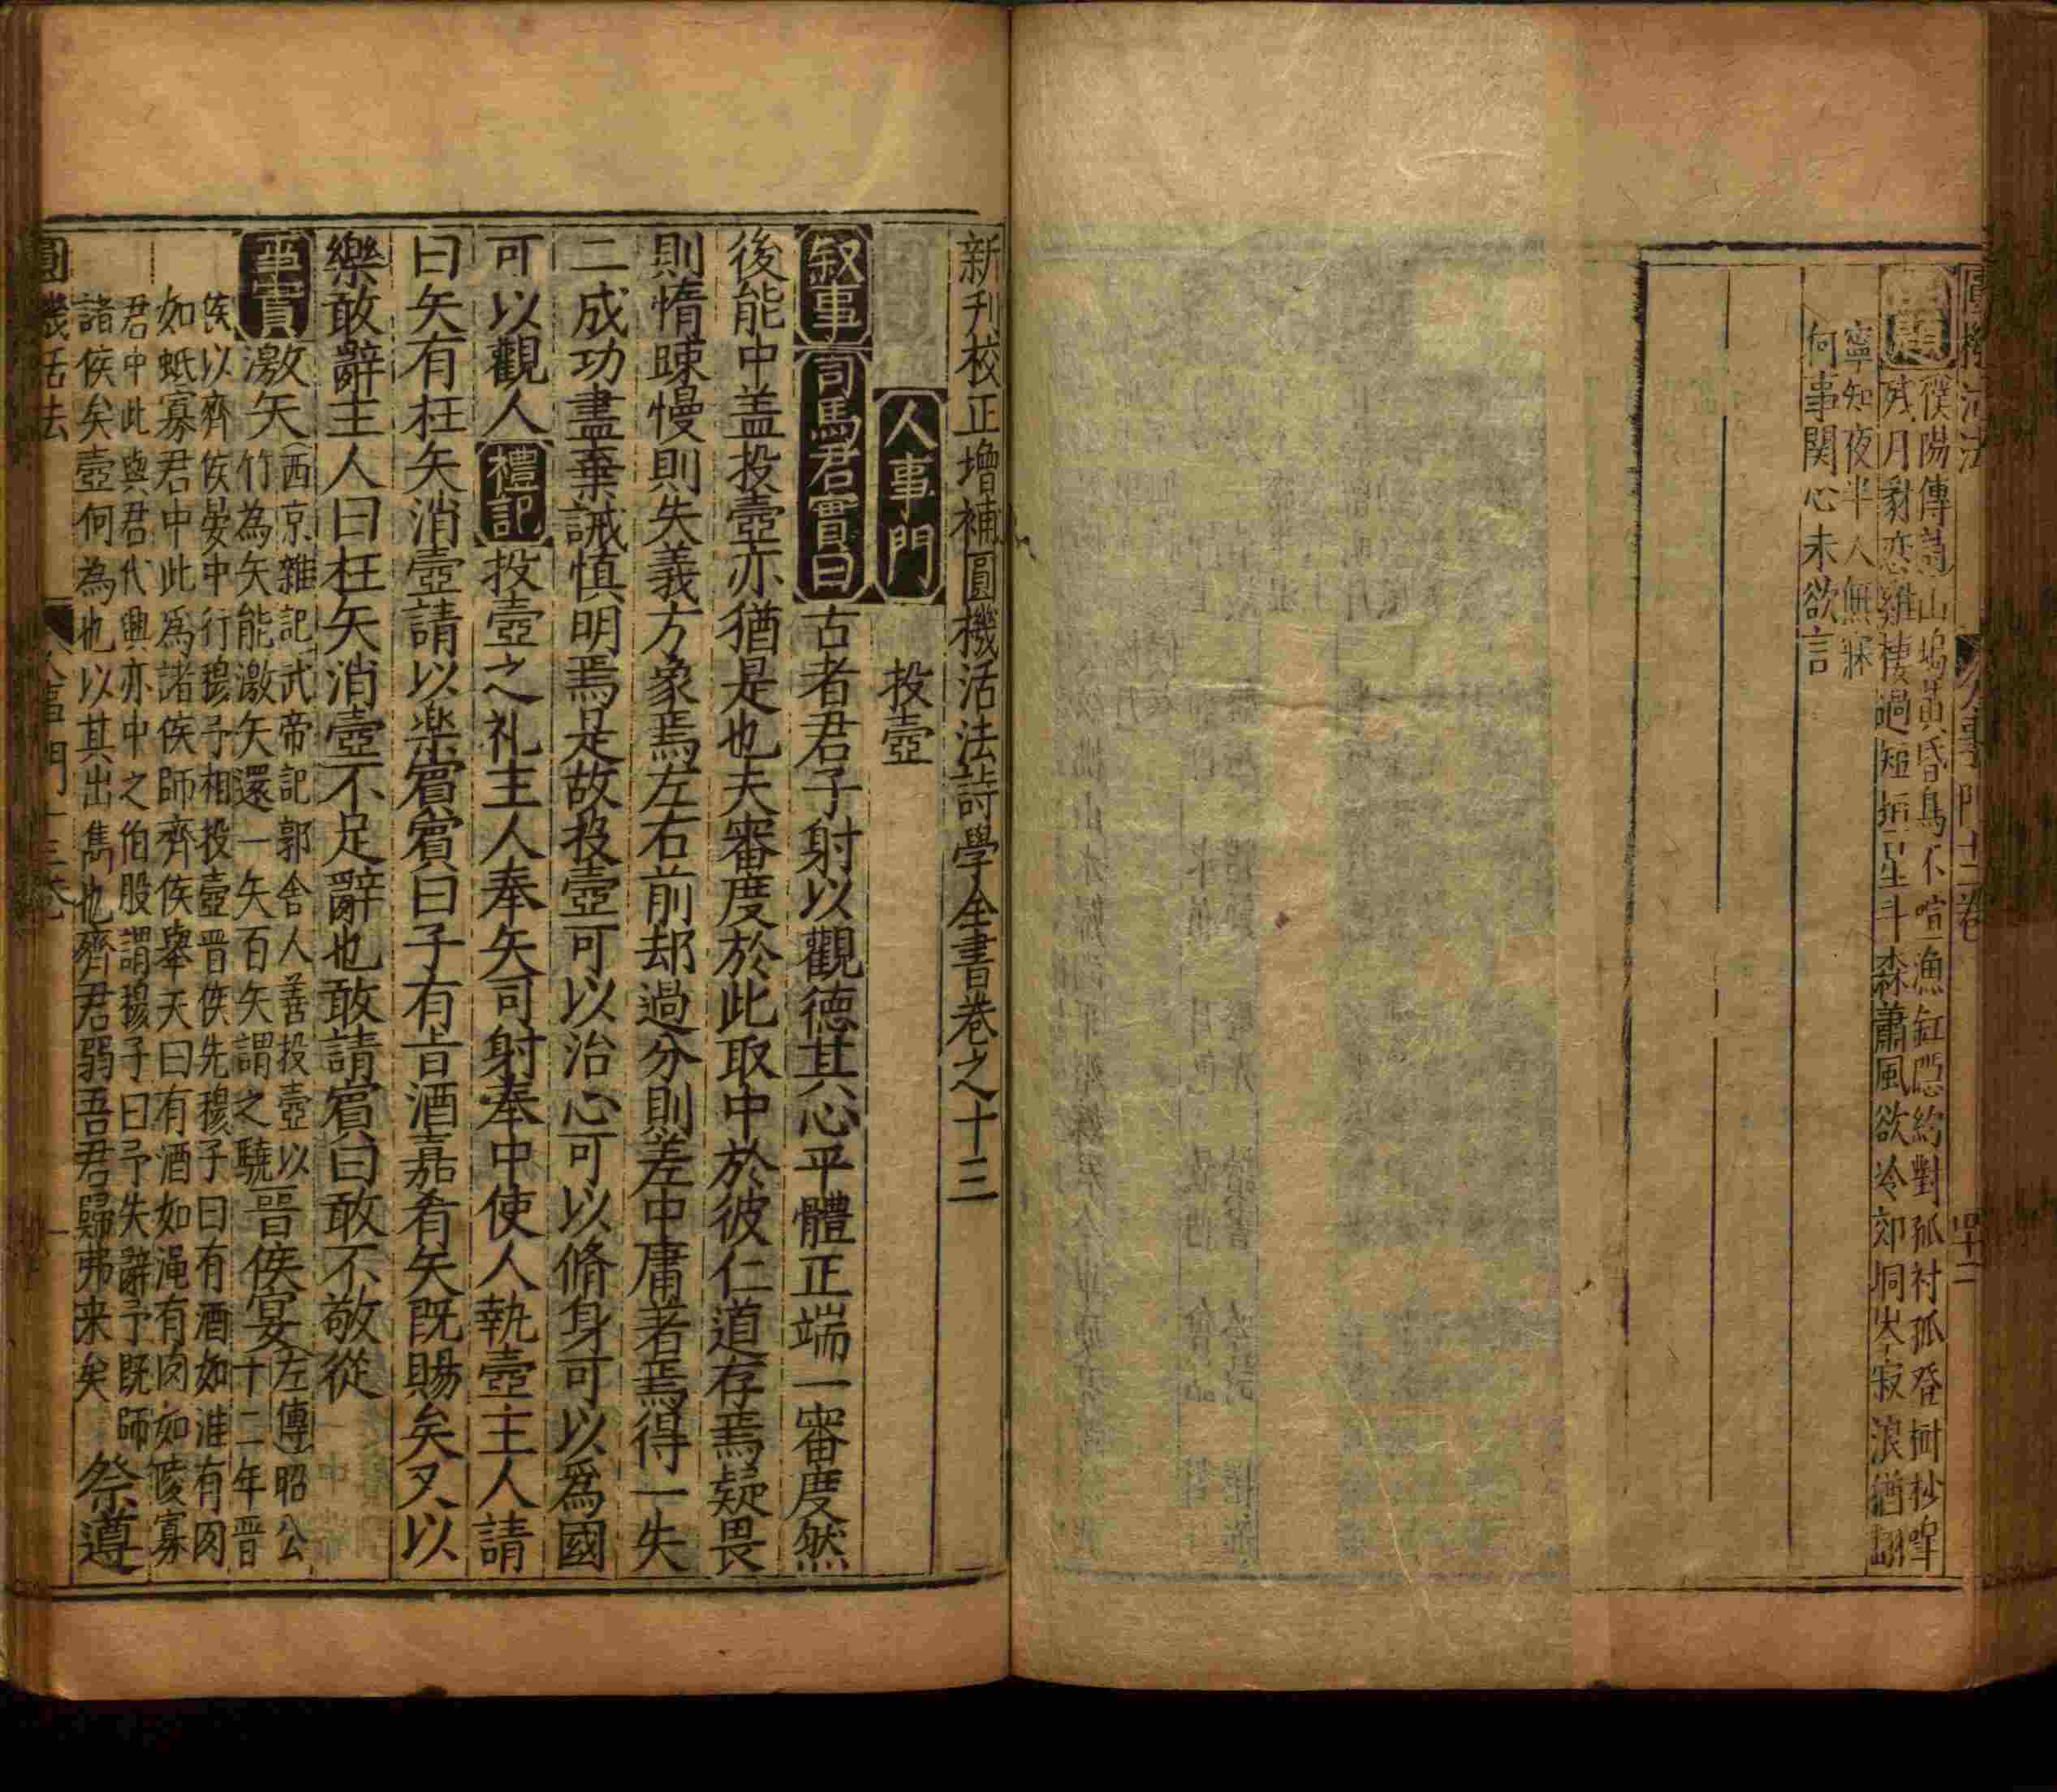 圓機活法 人事門十二卷 四十二
濮陽傳 山塢黃昏鳥不喧漁缸 約對孤村孤登樹杪
残月 恋雞棲過短垣星斗森蕭風欲冷郊坰 寂浪
寧知夜半人無寐
何事関心未欲言
新刋校正增補圓機活法詩學全書卷之十三
人事門 投壺
叙事 司馬君實曰 古者君子射以觀德其心平體正端一審度然
後能中盖投壺亦猶是也夫審度於此取中於彼仁道存焉疑畏
則惰踈慢則失義方象焉左右前却過分則差中庸著焉得一失
二成功盡棄誡慎明焉是故投壺可以治心可以脩身可以爲國
可以觀人 禮記 投壺之礼主人奉矢司射奉中使人執壺主人請
曰矢有枉矢消壺請以楽賔賔曰子有旨酒嘉肴矢既賜矣又以
樂敢辭主人曰枉矢消壺不足辭也敢請賔曰敢不敬從
事實 激矢 西京雜記武帝記郭舍人善投壺以
竹為矢能激矢還一矢百矢謂之驍 晋侯宴 左傳昭公
十二年晋
侯以齊侯晏中行穆子相投壺晋侯先穆子曰有酒如淮有肉
如蚳寡君中此為諸侯師齊侯舉矢曰有酒如渑有肉如陵寡
君中此與君代興亦中之伯股謂穆子曰予失辭予既師
諸侯矣壺何為也以其出雋也齊君弱吾君歸弗来矣 祭遵
圓機活法 人事門十三卷 一